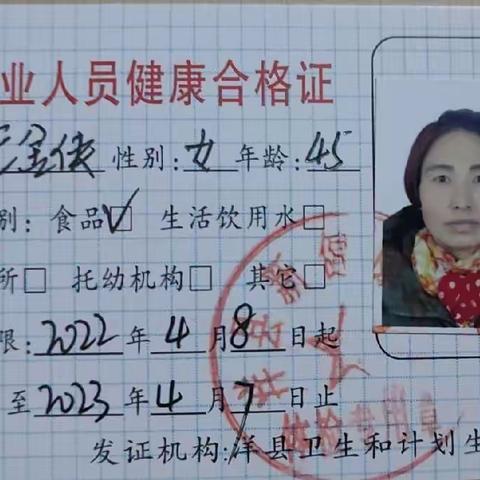 业人员健康合格证
金侠 性别:女 年龄:45
别: 食品☑ 生活饮用水□
所□ 托幼机构□ 其它□
限:2022年4月8日起
至2023年4月7日止
发证机构:洋县卫生和计划生